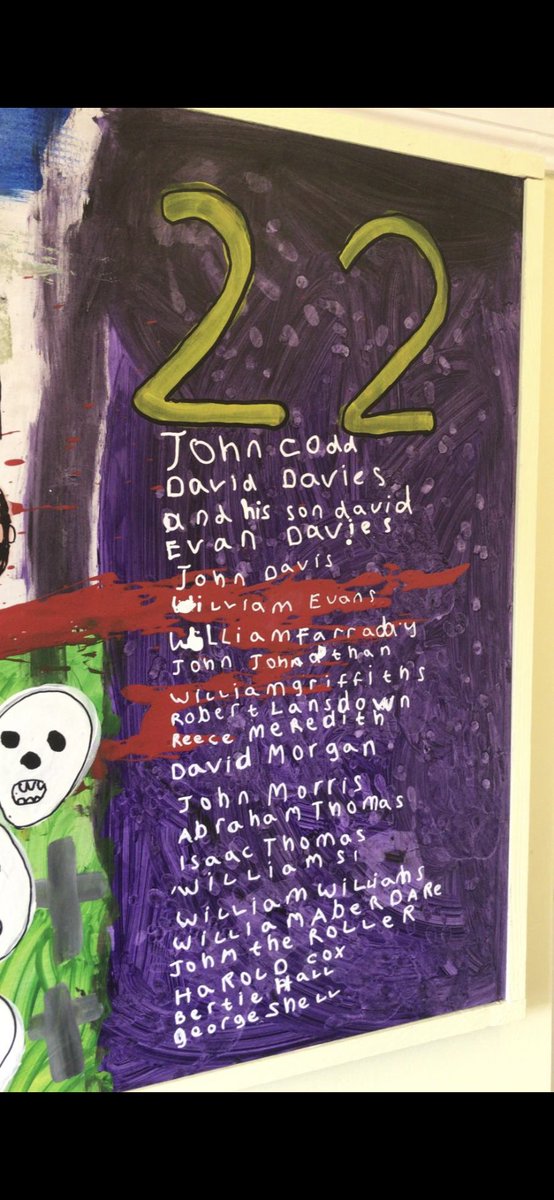 22
John codd
David Davies
and his son david
Evan Davies
John Davis
William Evans
William Farraday
John Johnathan
William griffiths
Robert Lansdown
Reece Meredith
David Morgan
John Morris
Abraham Thomas
Isaac Thomas
William S1
William Williams
William Aberdare
John the Roller
Harold Cox
Bertie Hall
george Shell